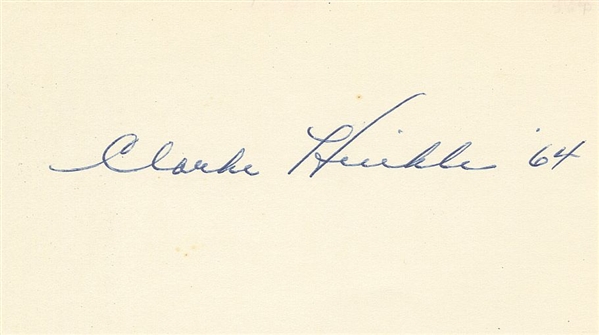 Clarke Hinkle '64